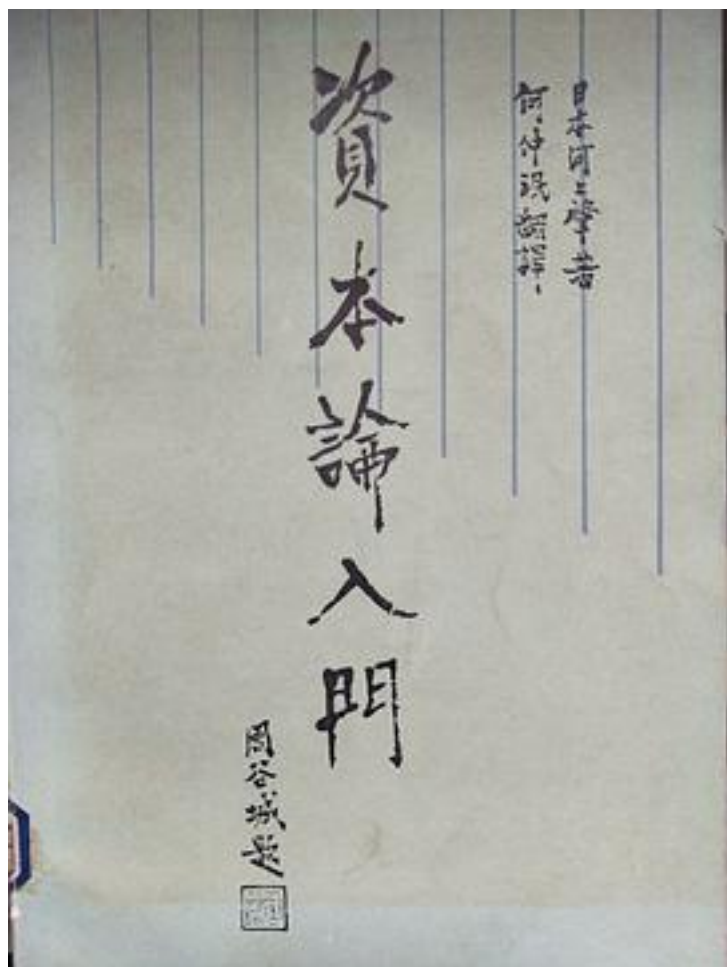 日本河上肇著
何仲珉翻譯、
資本論入門
周谷城题